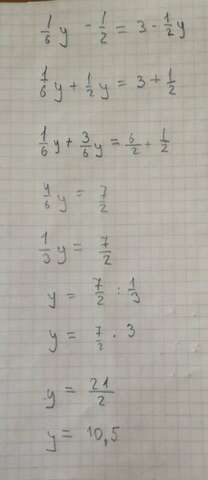 1/6 y - 1/2 = 3 - 1/2 y
1/6 y + 1/2 y = 3 + 1/2
1/6 y + 3/6 y = 6/2 + 1/2
4/6 y = 7/2
1/3 y = 7/2
y = 7/2 : 1/3
y = 7/2 · 3
y = 21/2
y = 10,5